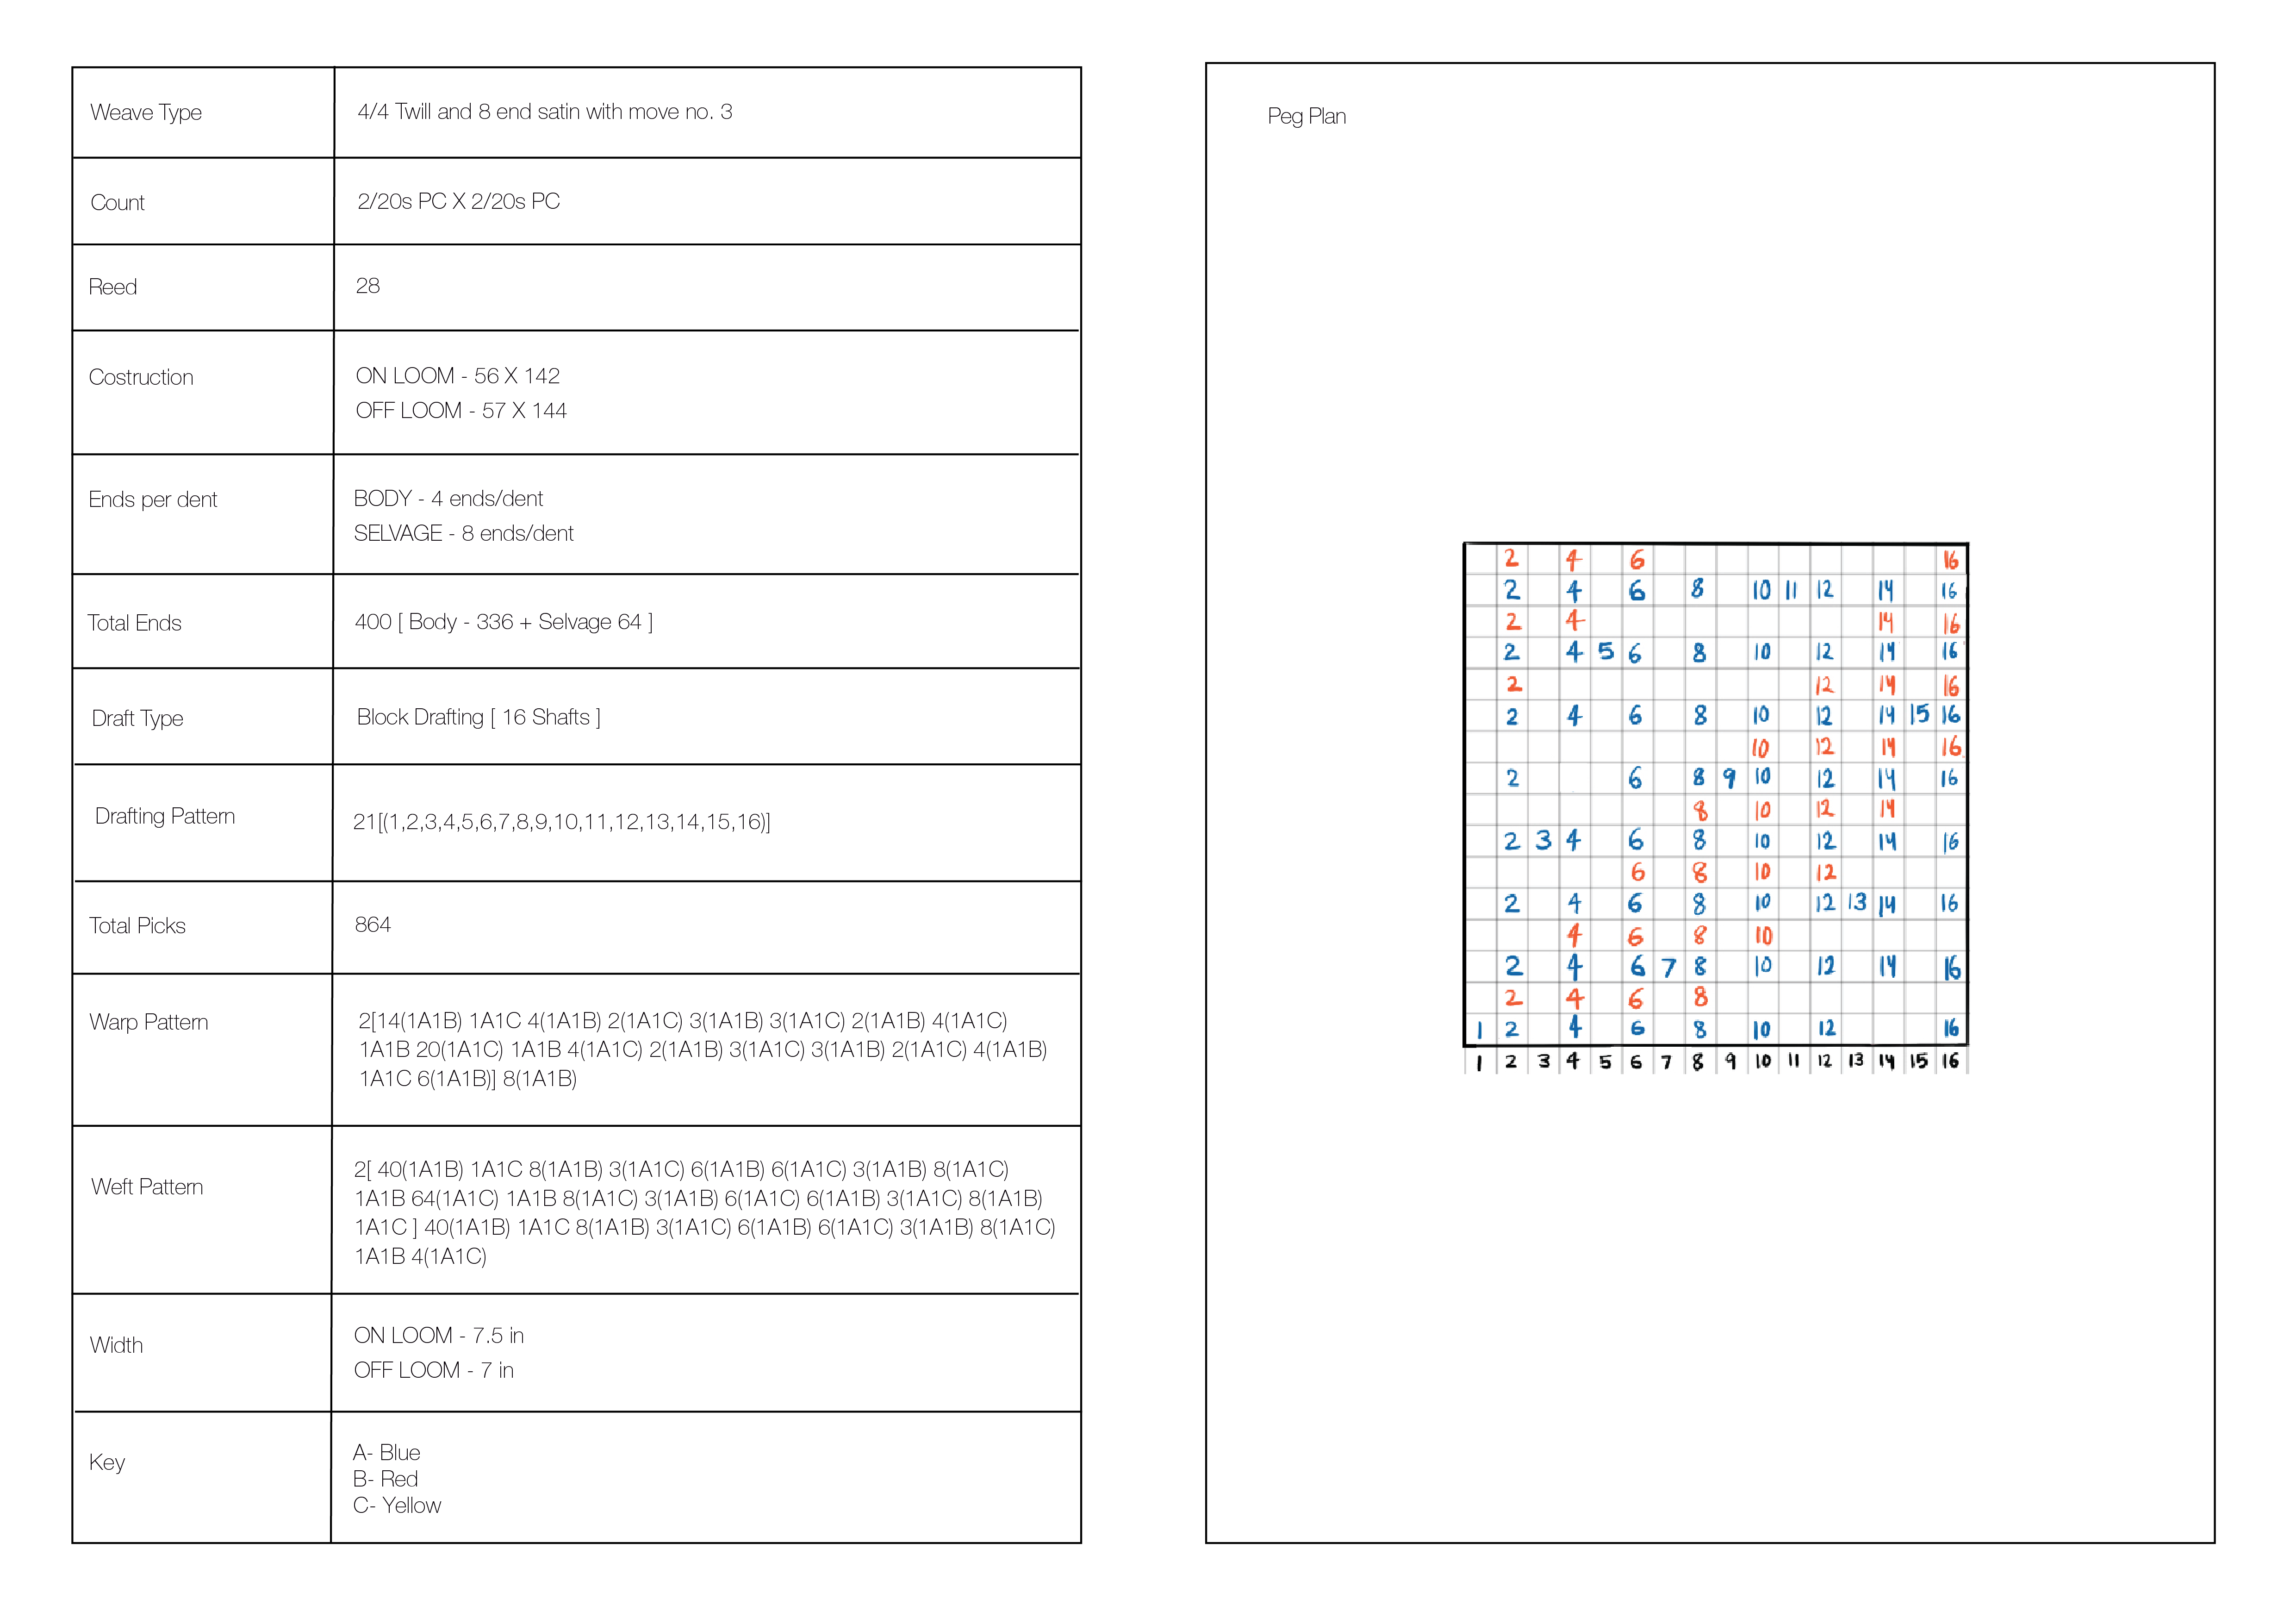 Weave Type
4/4 Twill and 8 end satin with move no. 3
Count
2/20s PC X 2/20s PC
Reed
28
Costruction
ON LOOM - 56 X 142
OFF LOOM - 57 X 144
Ends per dent
BODY - 4 ends/dent
SELVAGE - 8 ends/dent
Total Ends
400 [ Body - 336 + Selvage 64 ]
Draft Type
Block Drafting [ 16 Shafts ]
Drafting Pattern
21[(1,2,3,4,5,6,7,8,9,10,11,12,13,14,15,16)]
Total Picks
864
Warp Pattern
2[14(1A1B) 1A1C 4(1A1B) 2(1A1C) 3(1A1B) 3(1A1C) 2(1A1B) 4(1A1C)
1A1B 20(1A1C) 1A1B 4(1A1C) 2(1A1B) 3(1A1C) 3(1A1B) 2(1A1C) 4(1A1B)
1A1C 6(1A1B)] 8(1A1B)
Weft Pattern
2[ 40(1A1B) 1A1C 8(1A1B) 3(1A1C) 6(1A1B) 6(1A1C) 3(1A1B) 8(1A1C)
1A1B 64(1A1C) 1A1B 8(1A1C) 3(1A1B) 6(1A1C) 6(1A1B) 3(1A1C) 8(1A1B)
1A1C ] 40(1A1B) 1A1C 8(1A1B) 3(1A1C) 6(1A1B) 6(1A1C) 3(1A1B) 8(1A1C)
1A1B 4(1A1C)
Width
ON LOOM - 7.5 in
OFF LOOM - 7 in
Key
A- Blue
B- Red
C- Yellow
Peg Plan
2 4 6 16
2 4 6 8 10 11 12 14 16
2 4 14 16
2 4 5 6 8 10 12 14 16
2 12 14 16
2 4 6 8 10 12 14 15 16
10 12 14 16
2 6 8 9 10 12 14 16
8 10 12 14
2 3 4 6 8 10 12 14 16
6 8 10 12
2 4 6 8 10 12 13 14 16
4 6 8 10
2 4 6 7 8 10 12 14 16
2 4 6 8
1 2 4 6 8 10 12 16
1 2 3 4 5 6 7 8 9 10 11 12 13 14 15 16